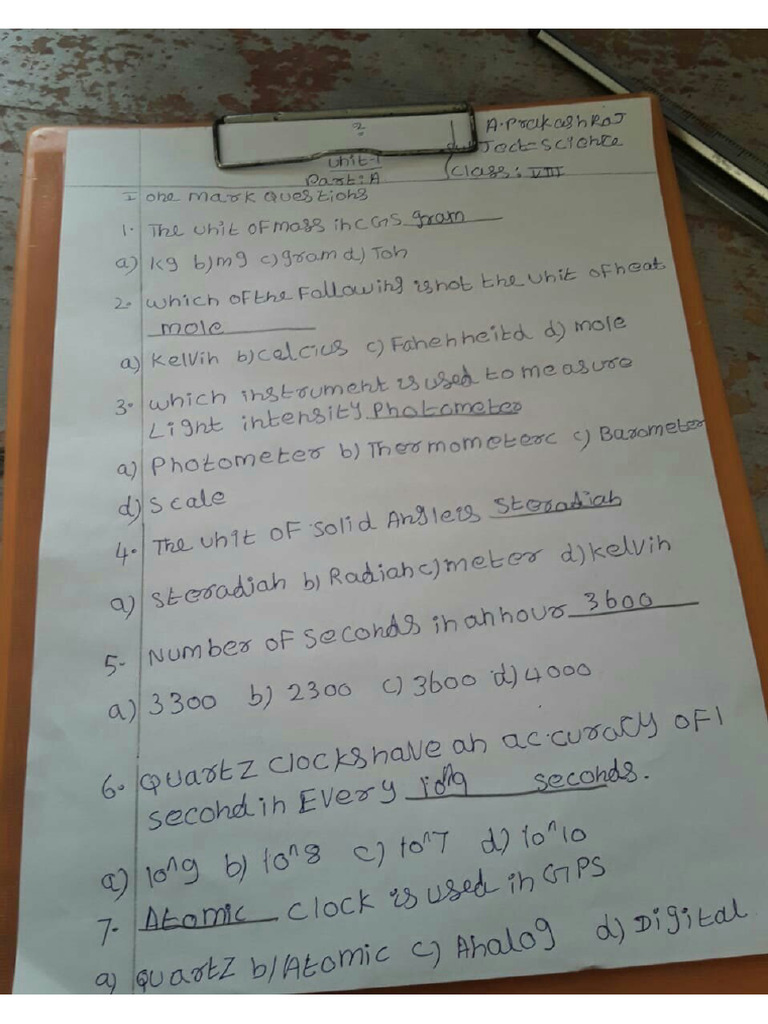 2
A. Prakash Raj
Unit-1
Part: A
Class: VIII
I one mark Questions
1. The unit of mass in CGS gram
a) kg b) mg c) gram d) Ton
2. which of the following is not the unit of heat
mole
a) Kelvin b) Calcius c) Fahenheitd d) mole
3. which instrument is used to measure
Light intensity Photometer
a) Photometer b) Thermometerc c) Barometer
d) Scale
4. The unit of solid Angle is Steradian
a) Steradian b) Radian c) meter d) kelvin
5. Number of Seconds in an hour 3600
a) 3300 b) 2300 c) 3600 d) 4000
6. Quartz clocks have an accuracy of 1
second in Every 10^9 seconds.
a) 10^9 b) 10^8 c) 10^7 d) 10^10
7. Atomic clock is used in GPS
a) Quartz b) Atomic c) Analog d) Digital